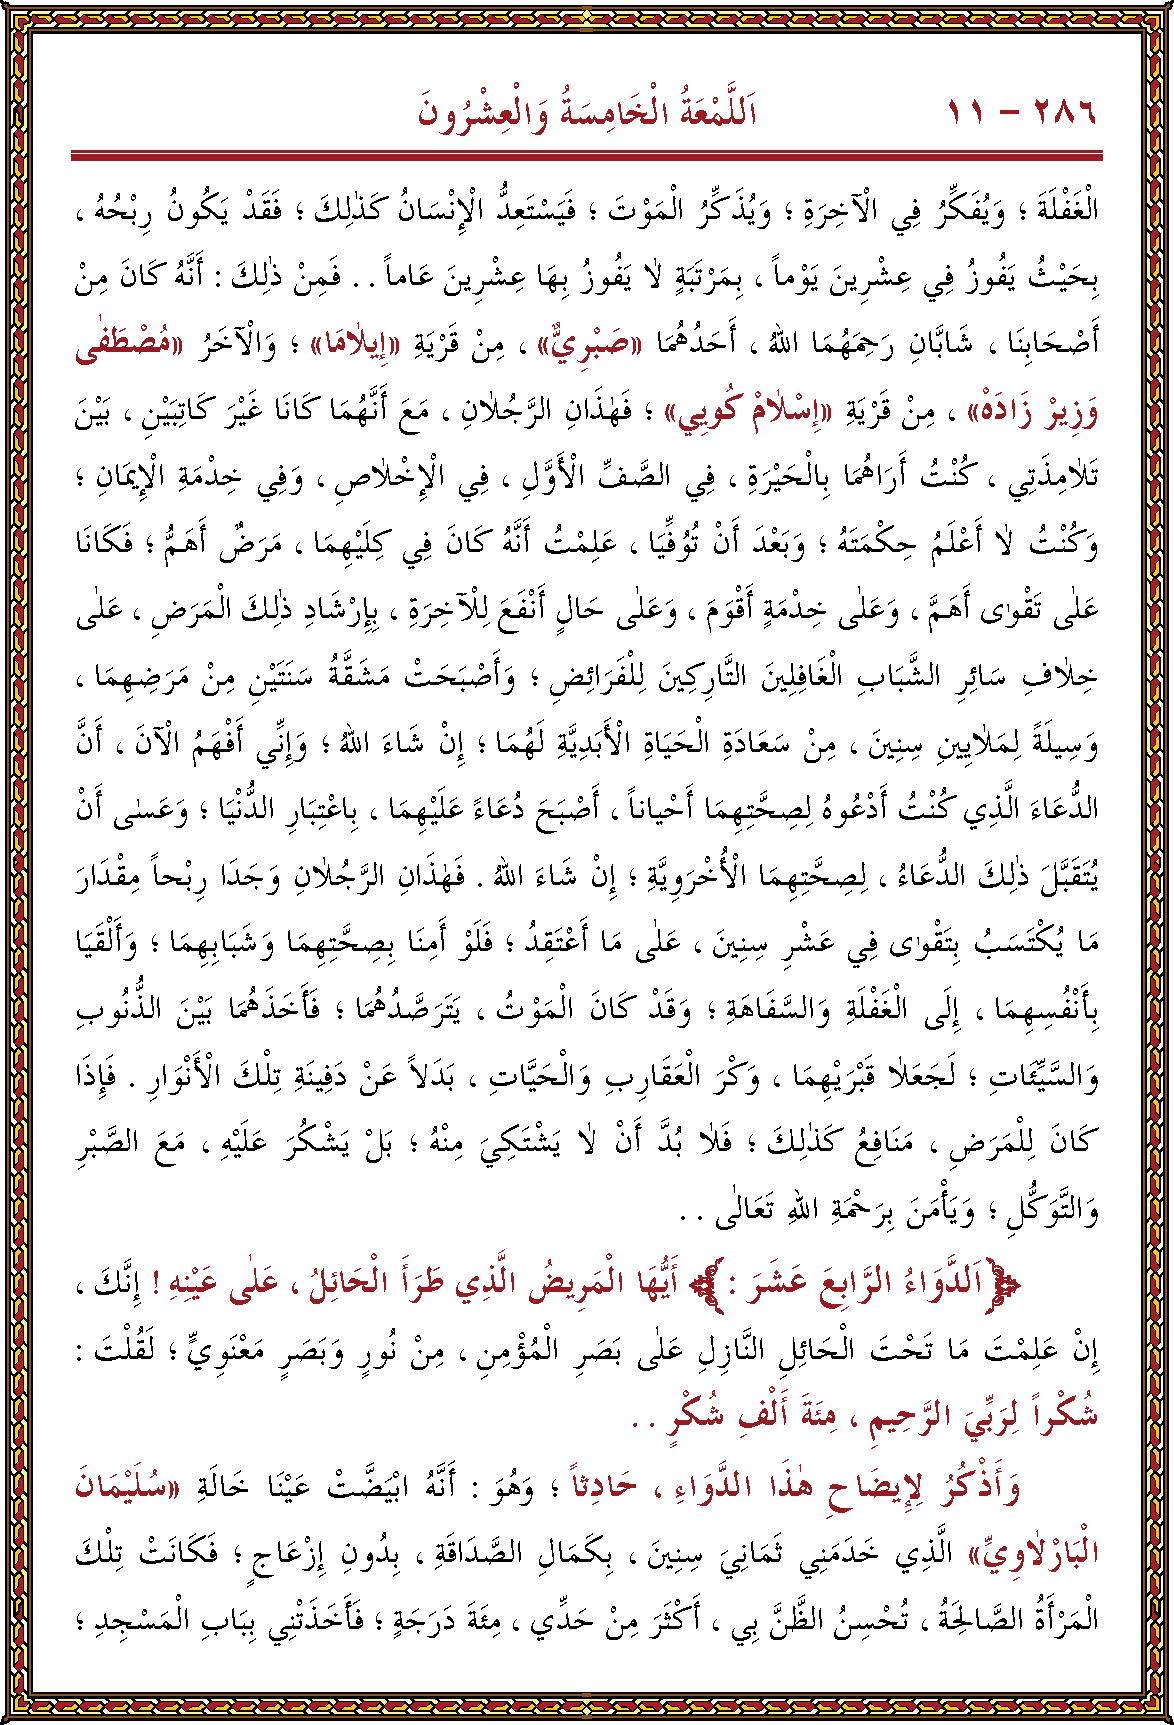 ٢٨٦ – ١١ اَللَّمْعَةُ الْخَامِسَةُ وَالْعِشْرُونَ
الْغَفْلَةَ ؛ وَيُفَكِّرُ فِي الْآخِرَةِ ؛ وَيُذَكِّرُ الْمَوْتَ ؛ فَيَسْتَعِدُّ الْإِنْسَانُ كَذٰلِكَ ؛ فَقَدْ يَكُونُ رِبْحُهُ ،
بِحَيْثُ يَفُوزُ فِي عِشْرِينَ يَوْماً ، بِمَرْتَبَةٍ لاٰ يَفُوزُ بِهَا عِشْرِينَ عَاماً . . فَمِنْ ذٰلِكَ : أَنَّهُ كَانَ مِنْ
أَصْحَابِنَا ، شَابَّانِ رَحِمَهُمَا اللهُ ، أَحَدُهُمَا «صَبْرِيٌّ» ، مِنْ قَرْيَةِ «إِيلاٰمَا» ؛ وَالْآخَرُ «مُصْطَفٰى
وَزِيرْ زَادَهْ» ، مِنْ قَرْيَةِ «إِسْلاٰمْ كُويِي» ؛ فَهٰذَانِ الرَّجُلاٰنِ ، مَعَ أَنَّهُمَا كَانَا غَيْرَ كَاتِبَيْنِ ، بَيْنَ
تَلاٰمِذَتِي ، كُنْتُ أَرَاهُمَا بِالْحَيْرَةِ ، فِي الصَّفِّ الْأَوَّلِ ، فِي الْإِخْلاٰصِ ، وَفِي خِدْمَةِ الْإِيمَانِ ؛
وَكُنْتُ لاٰ أَعْلَمُ حِكْمَتَهُ ؛ وَبَعْدَ أَنْ تُوُفِّيَا ، عَلِمْتُ أَنَّهُ كَانَ فِي كِلَيْهِمَا ، مَرَضٌ أَهَمُّ ؛ فَكَانَا
عَلٰى تَقْوٰى أَهَمَّ ، وَعَلٰى خِدْمَةٍ أَقْوَمَ ، وَعَلٰى حَالٍ أَنْفَعَ لِلْآخِرَةِ ، بِإِرْشَادِ ذٰلِكَ الْمَرَضِ ، عَلٰى
خِلاٰفِ سَائِرِ الشَّبَابِ الْغَافِلِينَ التَّارِكِينَ لِلْفَرَائِضِ ؛ وَأَصْبَحَتْ مَشَقَّةُ سَنَتَيْنِ مِنْ مَرَضِهِمَا ،
وَسِيلَةً لِمَلاٰيِينِ سِنِينَ ، مِنْ سَعَادَةِ الْحَيَاةِ الْأَبَدِيَّةِ لَهُمَا ؛ إِنْ شَاءَ اللهُ ؛ وَإِنِّي أَفْهَمُ الْآنَ ، أَنَّ
الدُّعَاءَ الَّذِي كُنْتُ أَدْعُوهُ لِصِحَّتِهِمَا أَحْيَاناً ، أَصْبَحَ دُعَاءً عَلَيْهِمَا ، بِاعْتِبَارِ الدُّنْيَا ؛ وَعَسٰى أَنْ
يُتَقَبَّلَ ذٰلِكَ الدُّعَاءُ ، لِصِحَّتِهِمَا الْأُخْرَوِيَّةِ ؛ إِنْ شَاءَ اللهُ . فَهٰذَانِ الرَّجُلاٰنِ وَجَدَا رِبْحاً مِقْدَارَ
مَا يُكْتَسَبُ بِتَقْوٰى فِي عَشْرِ سِنِينَ ، عَلٰى مَا أَعْتَقِدُ ؛ فَلَوْ أَمِنَا بِصِحَّتِهِمَا وَشَبَابِهِمَا ؛ وَأَلْقَيَا
بِأَنْفُسِهِمَا ، إِلَى الْغَفْلَةِ وَالسَّفَاهَةِ ؛ وَقَدْ كَانَ الْمَوْتُ ، يَتَرَصَّدُهُمَا ؛ فَأَخَذَهُمَا بَيْنَ الذُّنُوبِ
وَالسَّيِّئَاتِ ؛ لَجَعَلاٰ قَبْرَيْهِمَا ، وَكْرَ الْعَقَارِبِ وَالْحَيَّاتِ ، بَدَلاً عَنْ دَفِينَةِ تِلْكَ الْأَنْوَارِ . فَإِذَا
كَانَ لِلْمَرَضِ ، مَنَافِعُ كَذٰلِكَ ؛ فَلاٰ بُدَّ أَنْ لاٰ يَشْتَكِيَ مِنْهُ ؛ بَلْ يَشْكُرَ عَلَيْهِ ، مَعَ الصَّبْرِ
وَالتَّوَكُّلِ ؛ وَيَأْمَنَ بِرَحْمَةِ اللهِ تَعَالٰى . .
﴿اَلدَّوَاءُ الرَّابِعَ عَشَرَ :﴾ أَيُّهَا الْمَرِيضُ الَّذِي طَرَأَ الْحَائِلُ ، عَلٰى عَيْنِهِ ! إِنَّكَ ،
إِنْ عَلِمْتَ مَا تَحْتَ الْحَائِلِ النَّازِلِ عَلٰى بَصَرِ الْمُؤْمِنِ ، مِنْ نُورٍ وَبَصَرٍ مَعْنَوِيٍّ ؛ لَقُلْتَ :
شُكْراً لِرَبِّيَ الرَّحِيمِ ، مِئَةَ أَلْفِ شُكْرٍ . .
وَأَذْكُرُ لِإِيضَاحِ هٰذَا الدَّوَاءِ ، حَادِثاً ؛ وَهُوَ : أَنَّهُ ابْيَضَّتْ عَيْنَا خَالَةِ «سُلَيْمَانَ
الْبَارْلاٰوِيِّ» الَّذِي خَدَمَنِي ثَمَانِيَ سِنِينَ ، بِكَمَالِ الصَّدَاقَةِ ، بِدُونِ إِزْعَاجٍ ؛ فَكَانَتْ تِلْكَ
الْمَرْأَةُ الصَّالِحَةُ ، تُحْسِنُ الظَّنَّ بِي ، أَكْثَرَ مِنْ حَدِّي ، مِئَةَ دَرَجَةٍ ؛ فَأَخَذَتْنِي بِبَابِ الْمَسْجِدِ ؛